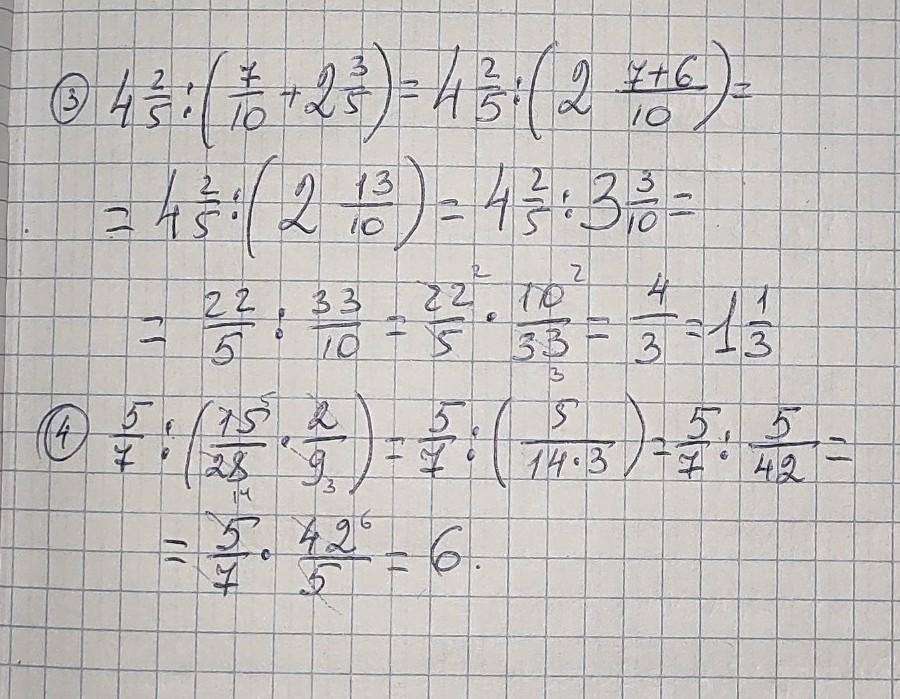 ③ 4 2/5 : (7/10 + 2 3/5) = 4 2/5 : (2 7+6/10) =
= 4 2/5 : (2 13/10) = 4 2/5 : 3 3/10 =
= 22/5 : 33/10 = 22²/5 · 10²/33₃ = 4/3 = 1 1/3
④ 5/7 : (15⁵/28₁₄ · 2/9₃) = 5/7 : (5/14·3) = 5/7 : 5/42 =
= 5/7 · 42⁶/5 = 6.